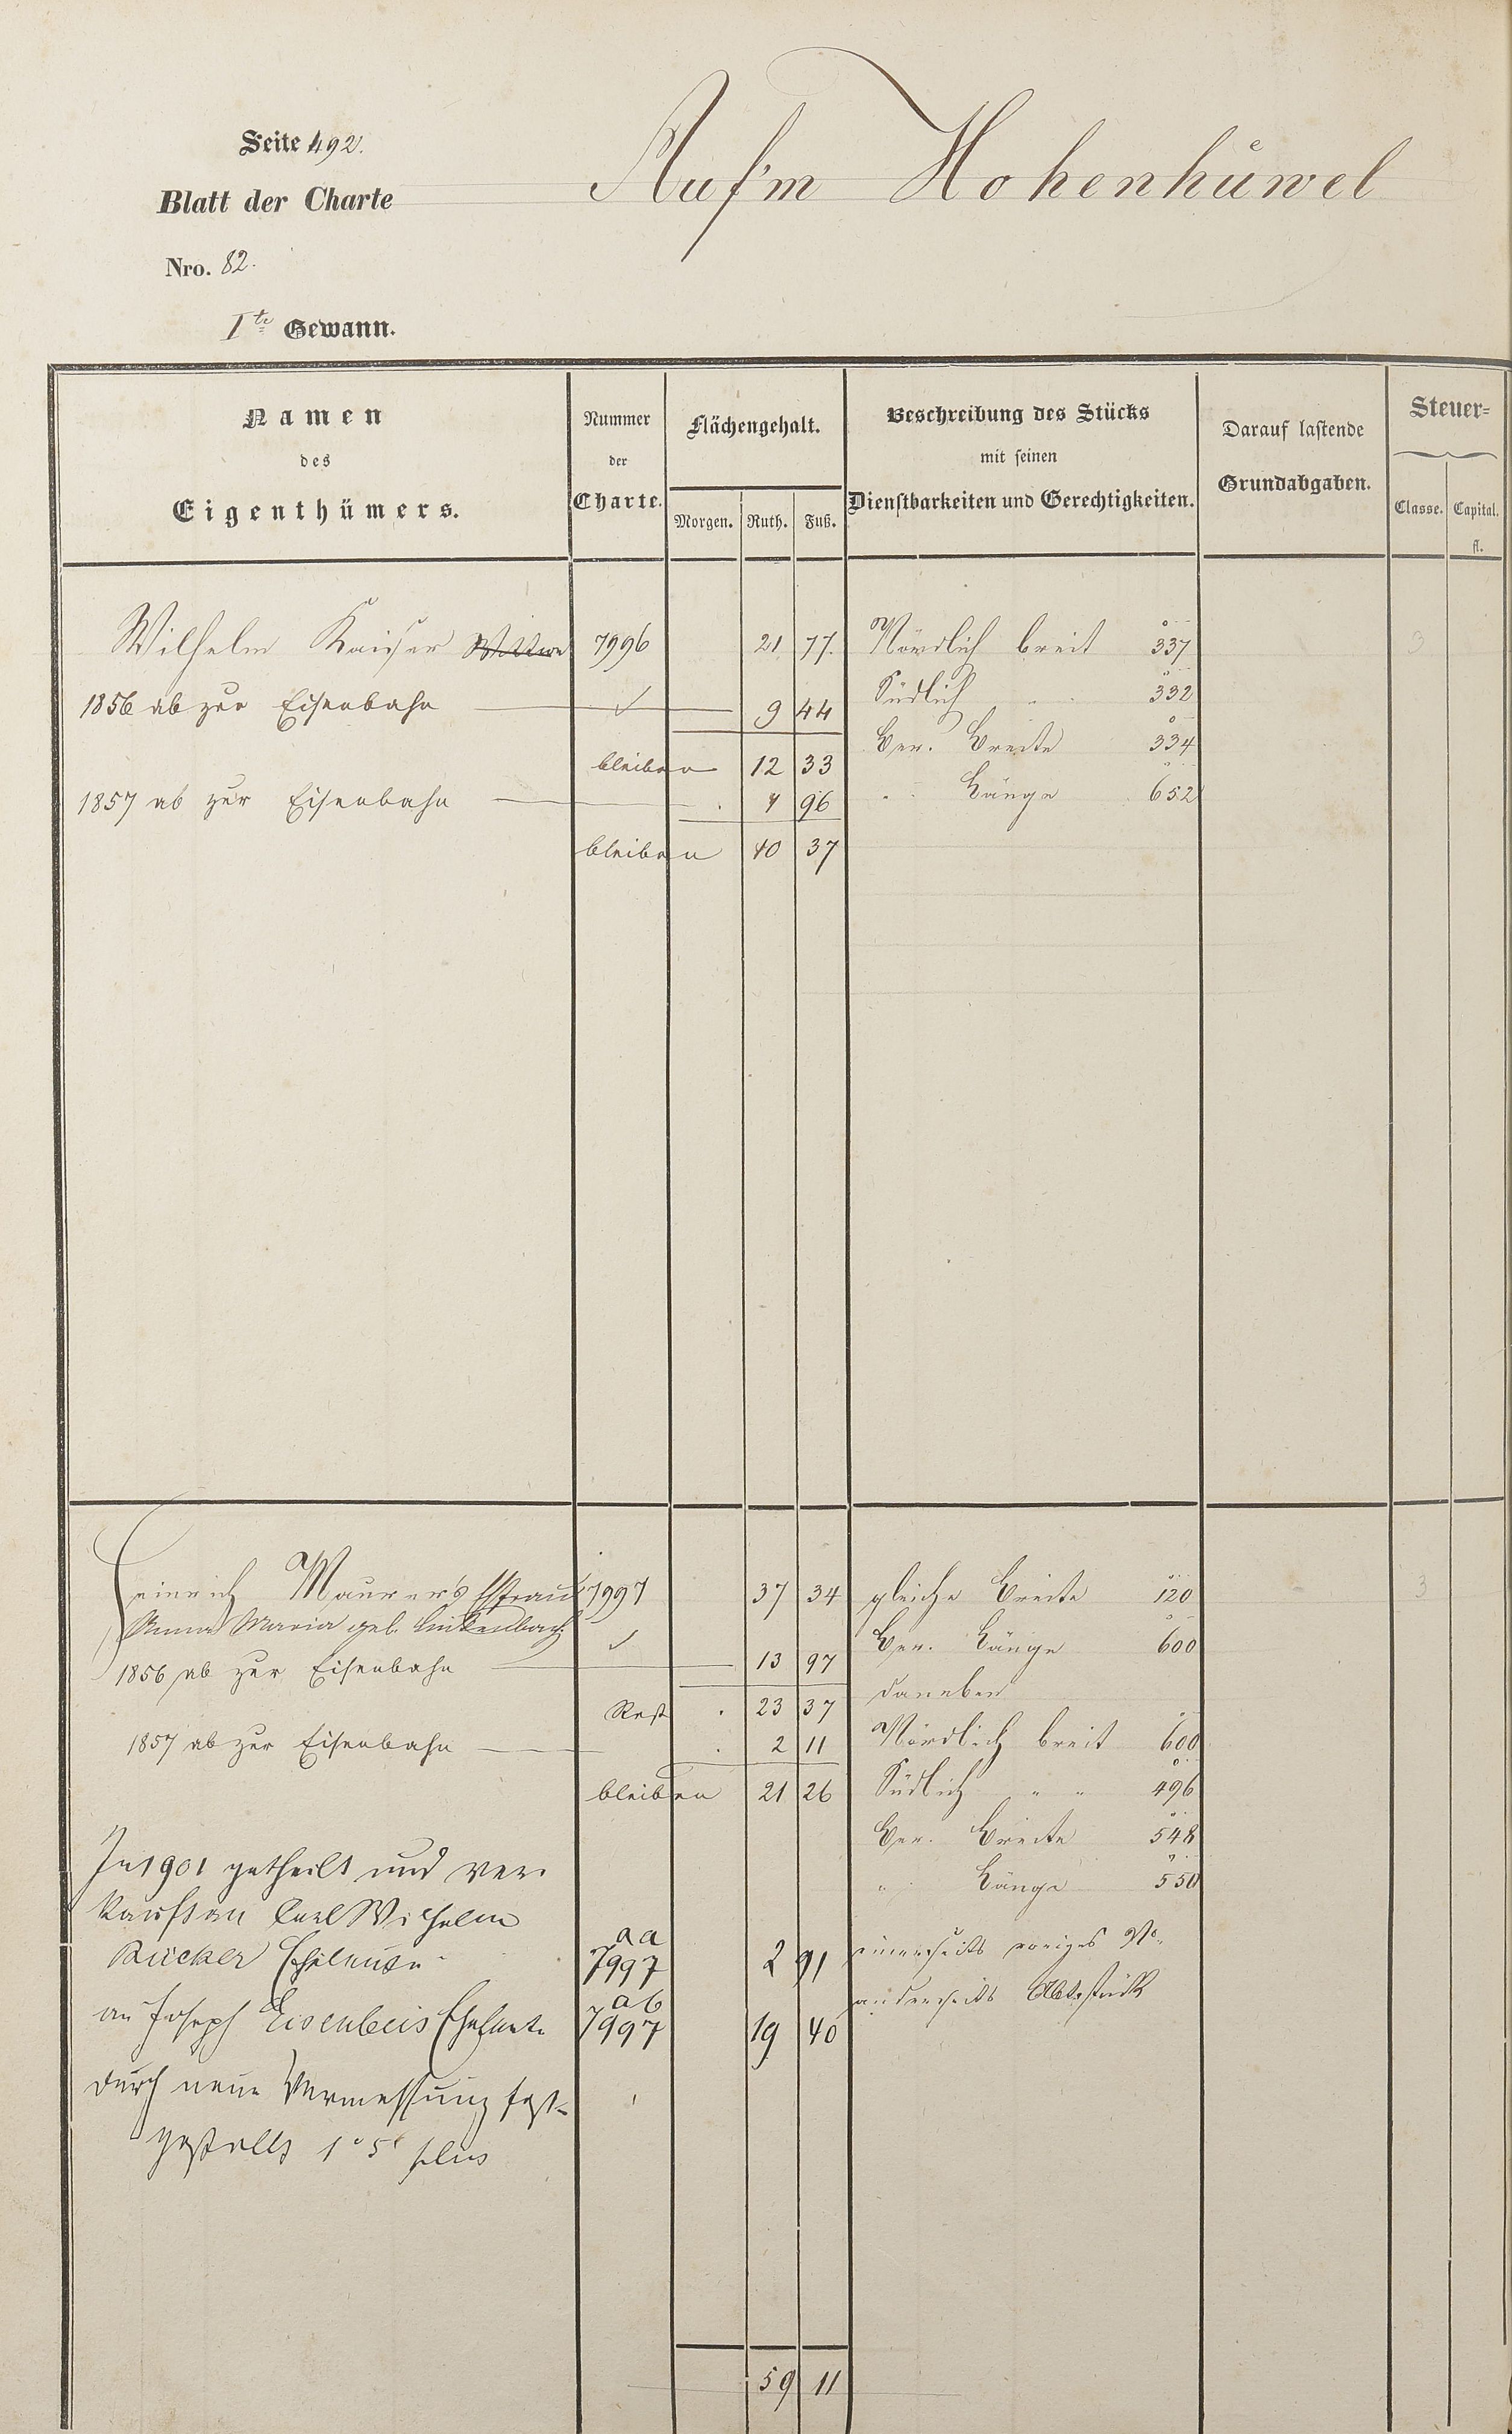 Seite 492.
Auf'm Hohenhüwel
Blatt der Charte
Nro. 82.
I te Gewann.
Namen des Eigenthümers.
Nummer der Charte.
Flächengehalt.
Morgen. Ruth. Fuß.
Beschreibung des Stücks mit seinen Dienstbarkeiten und Gerechtigkeiten.
Darauf lastende Grundabgaben.
Steuer=
Classe. Capital. fl.
Wilhelm Kaiser Wittwe 7996 21 77. Nördlich breit 337 3
1856 ab zur Eisenbahn 9 44 Südlich " 332
bleiben 12 33 Ber. Breite 334
1857 ab zur Eisenbahn 96 " Länge 652
bleiben 37
Heinrich Maurer's Ehefrau 7997 37 34 gleiche Breite 120 3
Anna Maria geb.
1856 ab zur Eisenbahn 13 97 Ber. Länge 600
daneben
Rest 23 37
1857 ab zur Eisenbahn 2 11 Nördlich breit 600
bleiben 21 26 Südlich " " 496
Ber. Breite 548
" Länge 550
In 1901 getheilt und ver-
kauft an Carl Wilhelm
Rücker Eheleute aa 7997 2 91 einerseits voriges No.
anderseits
an Joseph Eisenbeis Eheleute ab 7997 19 40
durch neue Vermessung fest-
gestellt 1° 5' plus
59 11